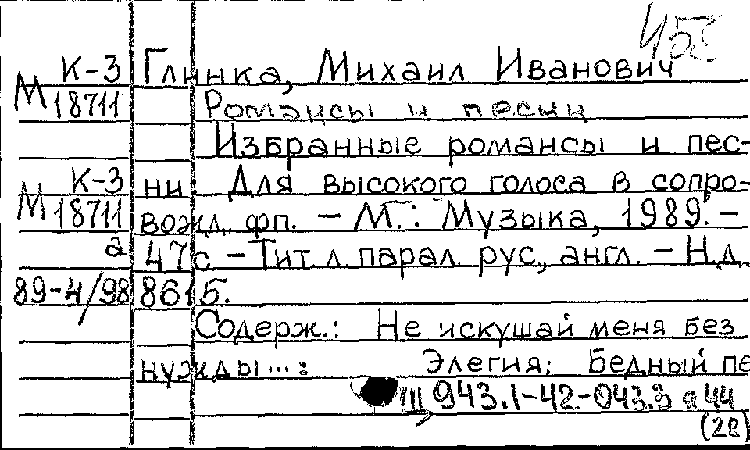 К-3 Глинка, Михаил Иванович
М 18711 Романсы и песни
Избранные романсы и пес-
К-3 ни: Для высокого голоса в сопро-
М 18711 вожд. фп. - М.: Музыка, 1989. -
а 47с - Тит л парал рус., англ. - Н.д.
89-4/98 8615.
Содерж.: Не искушай меня без
нужды...: Элегия; Бедный пе
Ш 943.1-42-043.3 а44